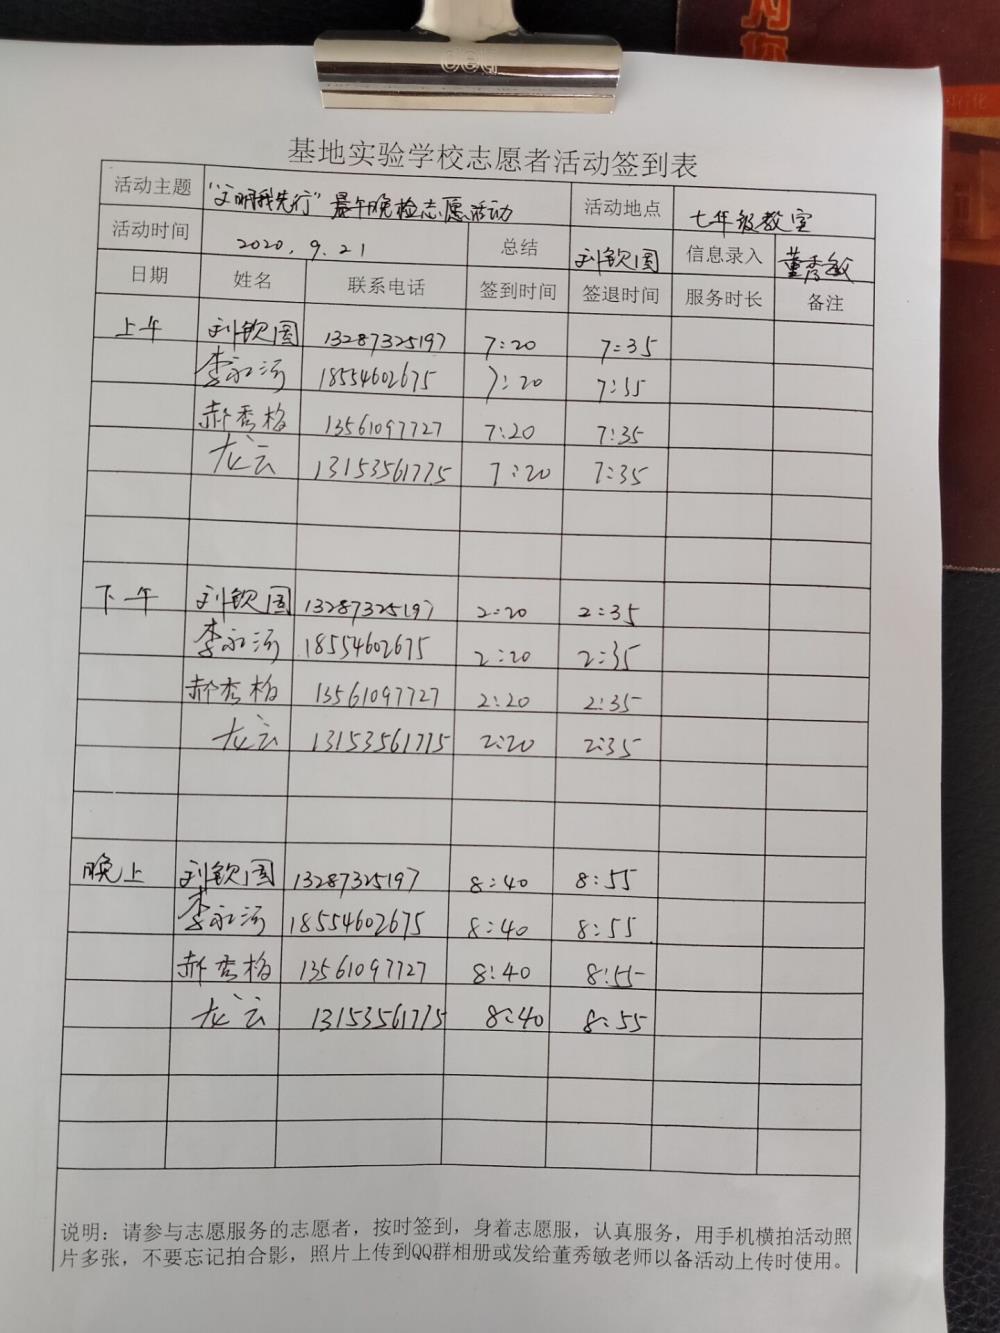 为你
基地实验学校志愿者活动签到表
活动主题 "文明我先行" 晨午晚检志愿活动 活动地点 七年级教室
活动时间 2020.9.21 总结 刘钦国 信息录入 董秀敏
日期 姓名 联系电话 签到时间 签退时间 服务时长 备注
上午 刘钦国 13287325197 7:20 7:35
李永河 18554602675 7:20 7:35
郝秀梅 13561097727 7:20 7:35
龙云 13153561775 7:20 7:35
下午 刘钦国 13287325197 2:20 2:35
李永河 18554602675 2:20 2:35
郝秀梅 13561097727 2:20 2:35
龙云 13153561775 2:20 2:35
晚上 刘钦国 13287325197 8:40 8:55
李永河 18554602675 8:40 8:55
郝秀梅 13561097727 8:40 8:55
龙云 13153561775 8:40 8:55
说明：请参与志愿服务的志愿者，按时签到，身着志愿服，认真服务，用手机横拍活动照
片多张，不要忘记拍合影，照片上传到QQ群相册或发给董秀敏老师以备活动上传时使用。